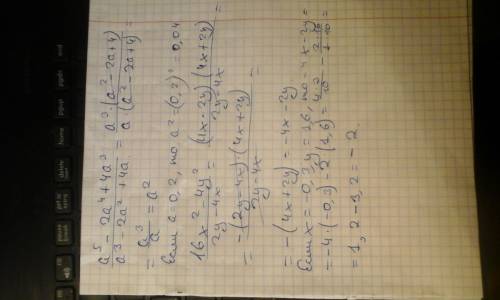 a⁵ - 2a⁴ + 4a³ / a³ - 2a² + 4a = a³·(a² - 2a + 4) / a(a² - 2a + 4) =
= a³/a = a²
Если a = 0,2, то a² = (0,2)² = 0,04
16x² - 4y² / 2y - 4x = (4x - 2y)(4x + 2y) / 2y - 4x =
= -(2y - 4x)·(4x + 2y) / 2y - 4x =
= -(4x + 2y) = -4x - 2y
Если x = -0,3, y = 1,6, то -4x - 2y =
= -4·(-0,3) - 2·(1,6) =
= 1,2 - 3,2 = -2.